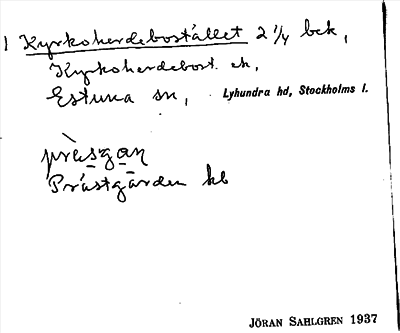 1 Kyrkoherdebostället 2 1/4 bck,
Kyrkoherdebost. ek,
Estuna sn, Lyhundra hd, Stockholms l.
pràsgạn
Prästgården kb
JÖRAN SAHLGREN 1937